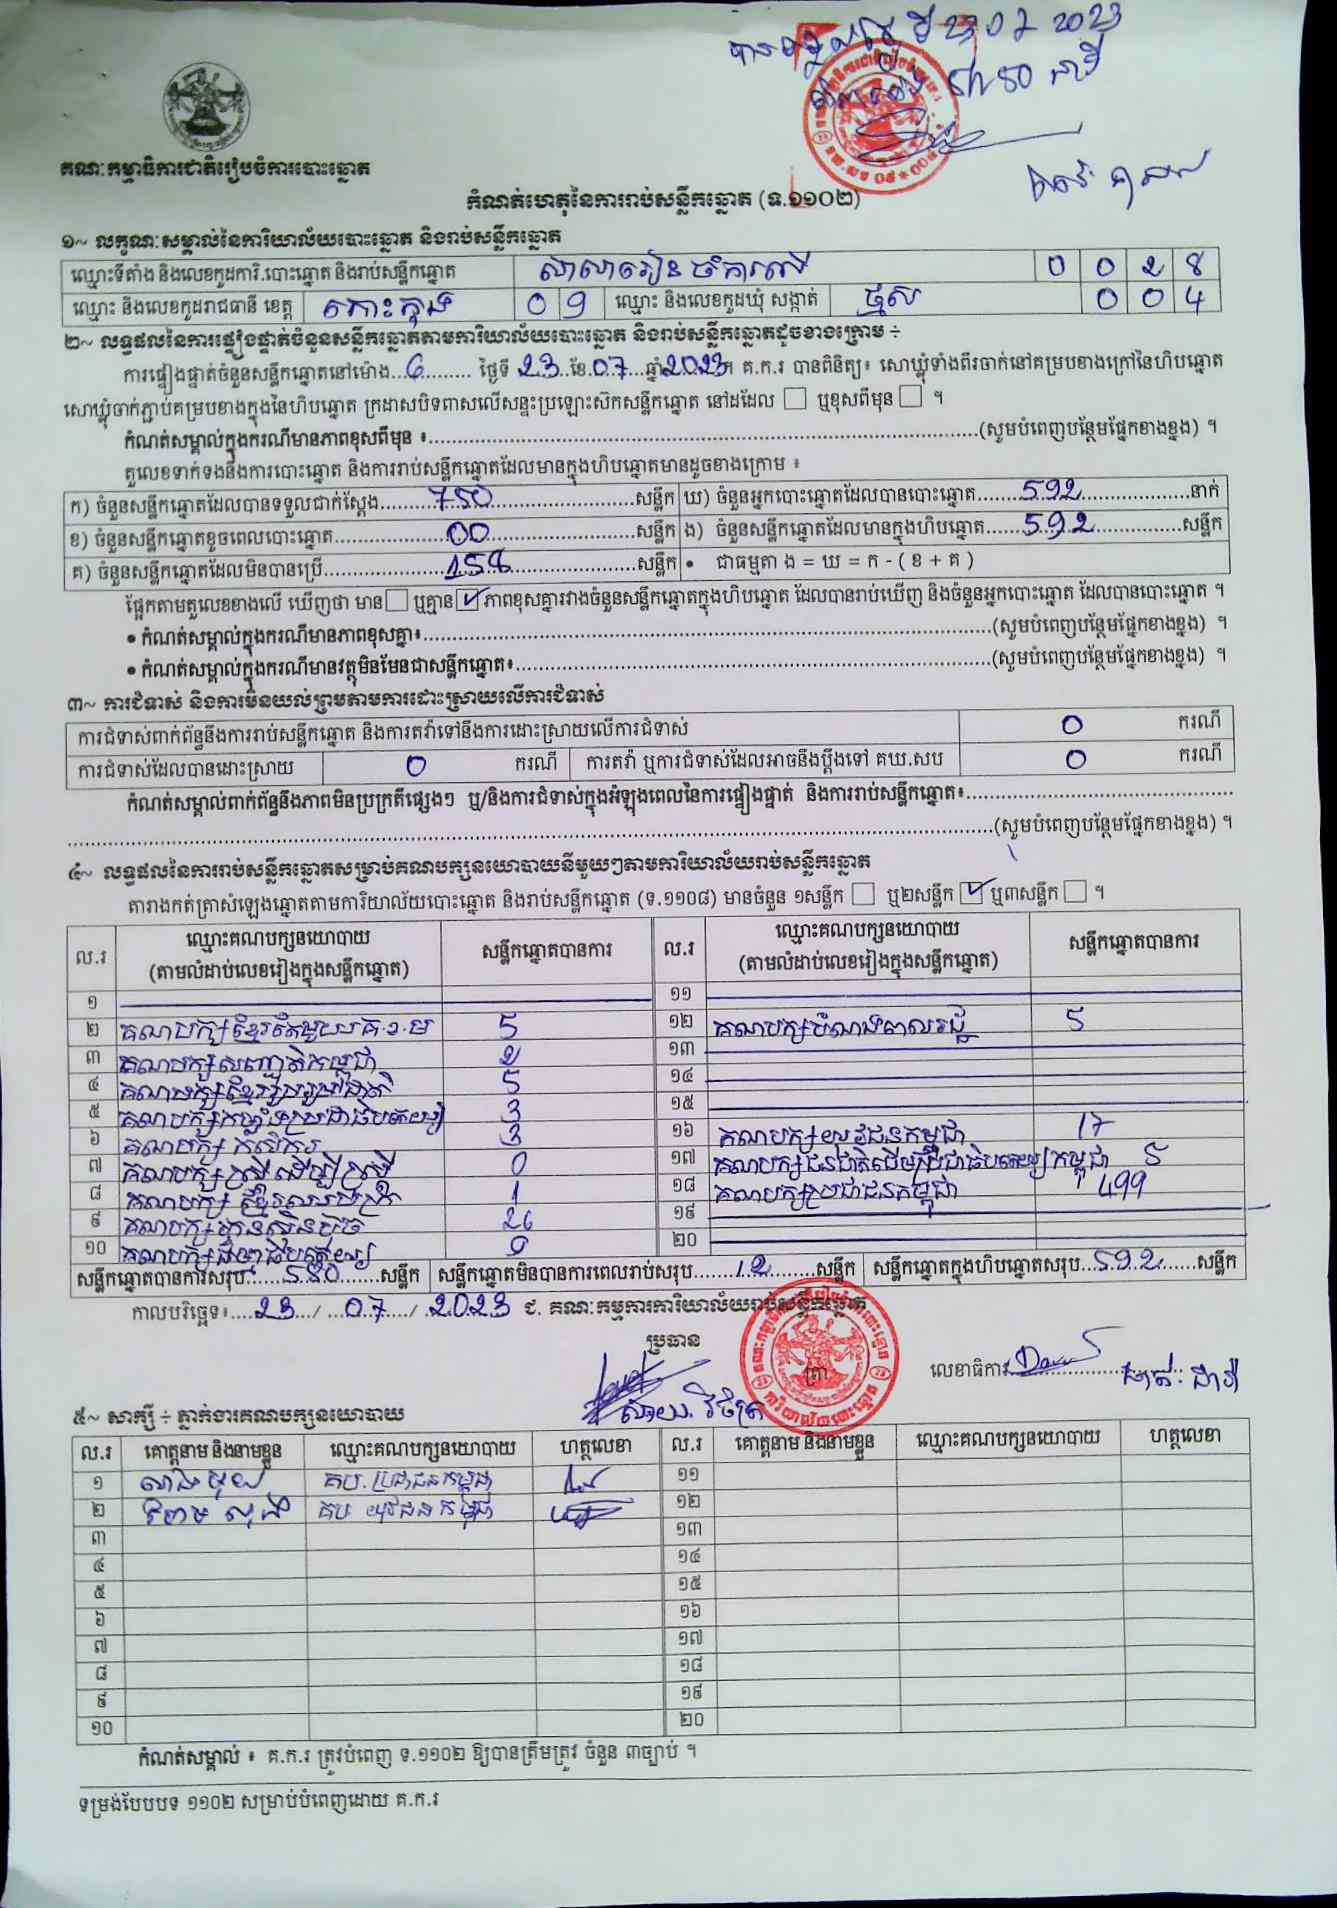 23 07 2023
គណៈកម្មាធិការជាតិរៀបចំការបោះឆ្នោត
កំណត់ហេតុនៃការរាប់សន្លឹកឆ្នោត (ទ.១១០២)
១~ លក្ខណៈសម្គាល់នៃការិយាល័យបោះឆ្នោត និងរាប់សន្លឹកឆ្នោត
ឈ្មោះទីតាំង និងលេខកូដការិ.បោះឆ្នោត និងរាប់សន្លឹកឆ្នោត សាលារៀន ចំការលើ 0 0 2 8
ឈ្មោះ និងលេខកូដរាជធានី ខេត្ត កោះកុង 0 9 ឈ្មោះ និងលេខកូដឃុំ សង្កាត់ ថ្មស 0 0 4
២~ លទ្ធផលនៃការផ្ទៀងផ្ទាត់ចំនួនសន្លឹកឆ្នោតតាមការិយាល័យបោះឆ្នោត និងរាប់សន្លឹកឆ្នោតដូចខាងក្រោម ÷
ការផ្ទៀងផ្ទាត់ចំនួនសន្លឹកឆ្នោតនៅម៉ោង...6......... ថ្ងៃទី 23..ខែ.07...ឆ្នាំ2023។ គ.ក.រ បានពិនិត្យ៖ សោឃ្លុំទាំងពីរចាក់នៅគម្របខាងក្រៅនៃហិបឆ្នោត
សោឃ្លុំចាក់ភ្ជាប់គម្របខាងក្នុងនៃហិបឆ្នោត ក្រដាសបិទពាសលើសន្ទះប្រឡោះស៊កសន្លឹកឆ្នោត នៅដដែល ☐ ឬខុសពីមុន ☐ ។
កំណត់សម្គាល់ក្នុងករណីមានភាពខុសពីមុន ៖........(សូមបំពេញបន្ថែមផ្នែកខាងខ្នង) ។
តួលេខទាក់ទងនឹងការបោះឆ្នោត និងការរាប់សន្លឹកឆ្នោតដែលមានក្នុងហិបឆ្នោតមានដូចខាងក្រោម ៖
ក) ចំនួនសន្លឹកឆ្នោតដែលបានទទួលជាក់ស្តែង........750........សន្លឹក ឃ) ចំនួនអ្នកបោះឆ្នោតដែលបានបោះឆ្នោត........592........នាក់
ខ) ចំនួនសន្លឹកឆ្នោតខូចពេលបោះឆ្នោត........00........សន្លឹក ង) ចំនួនសន្លឹកឆ្នោតដែលមានក្នុងហិបឆ្នោត........592........សន្លឹក
គ) ចំនួនសន្លឹកឆ្នោតដែលមិនបានប្រើ........158........សន្លឹក • ជាធម្មតា ង = ឃ = ក - ( ខ + គ )
ផ្អែកតាមតួលេខខាងលើ ឃើញថា មាន ☐ ឬគ្មាន ☑ ភាពខុសគ្នារវាងចំនួនសន្លឹកឆ្នោតក្នុងហិបឆ្នោត ដែលបានរាប់ឃើញ និងចំនួនអ្នកបោះឆ្នោត ដែលបានបោះឆ្នោត ។
• កំណត់សម្គាល់ក្នុងករណីមានភាពខុសគ្នា៖........(សូមបំពេញបន្ថែមផ្នែកខាងខ្នង) ។
• កំណត់សម្គាល់ក្នុងករណីមានវត្ថុមិនមែនជាសន្លឹកឆ្នោត៖........(សូមបំពេញបន្ថែមផ្នែកខាងខ្នង) ។
៣~ ការជំទាស់ និងការមិនយល់ព្រមតាមការដោះស្រាយលើការជំទាស់
ការជំទាស់ពាក់ព័ន្ធនឹងការរាប់សន្លឹកឆ្នោត និងការតវ៉ាទៅនឹងការដោះស្រាយលើការជំទាស់ 0 ករណី
ការជំទាស់ដែលបានដោះស្រាយ 0 ករណី ការតវ៉ា ឬការជំទាស់ដែលអាចនឹងប្តឹងទៅ គឃ.សប 0 ករណី
កំណត់សម្គាល់ពាក់ព័ន្ធនឹងភាពមិនប្រក្រតីផ្សេងៗ ឬ/និងការជំទាស់ក្នុងអំឡុងពេលនៃការផ្ទៀងផ្ទាត់ និងការរាប់សន្លឹកឆ្នោត៖........
........(សូមបំពេញបន្ថែមផ្នែកខាងខ្នង) ។
៤~ លទ្ធផលនៃការរាប់សន្លឹកឆ្នោតសម្រាប់គណបក្សនយោបាយនីមួយៗតាមការិយាល័យរាប់សន្លឹកឆ្នោត
តារាងកត់ត្រាសំឡេងឆ្នោតតាមការិយាល័យបោះឆ្នោត និងរាប់សន្លឹកឆ្នោត (ទ.១១០៨) មានចំនួន ១សន្លឹក ☐ ឬ២សន្លឹក ☑ ឬ៣សន្លឹក ☐ ។
ល.រ ឈ្មោះគណបក្សនយោបាយ (តាមលំដាប់លេខរៀងក្នុងសន្លឹកឆ្នោត) សន្លឹកឆ្នោតបានការ ល.រ ឈ្មោះគណបក្សនយោបាយ (តាមលំដាប់លេខរៀងក្នុងសន្លឹកឆ្នោត) សន្លឹកឆ្នោតបានការ
១ ១១
២ គណបក្សខ្មែរតែមួយ 5 ១២ គណបក្សបំណងពលរដ្ឋ 5
៣ គណបក្សសញ្ជាតិកម្ពុជា 2 ១៣
៤ គណបក្សខ្មែររួបរួមជាតិ 5 ១៤
៥ គណបក្សកម្លាំងប្រជាធិបតេយ្យ 3 ១៥
៦ គណបក្ស កសិករ 3 ១៦ គណបក្សយុវជនកម្ពុជា 17
៧ គណបក្សស្ត្រីដើម្បីស្ត្រី 0 ១៧ គណបក្សជនជាតិដើមប្រជាធិបតេយ្យកម្ពុជា 5
៨ គណបក្ស ខ្មែរ 1 ១៨ គណបក្សប្រជាជនកម្ពុជា 499
៩ គណបក្សហ៊្វុនស៊ិនប៉ិច 26 ១៩
១០ គណបក្ស 9 ២០
សន្លឹកឆ្នោតបានការសរុប:.....580......សន្លឹក សន្លឹកឆ្នោតមិនបានការពេលរាប់សរុប........12........សន្លឹក សន្លឹកឆ្នោតក្នុងហិបឆ្នោតសរុប..592......សន្លឹក
កាលបរិច្ឆេទ៖....23.../...07..../..2023 ជ. គណៈកម្មការការិយាល័យរាប់សន្លឹកឆ្នោត
ប្រធាន
ត្រា
លេខាធិការ
៥~ សាក្សី ÷ ភ្នាក់ងារគណបក្សនយោបាយ
ល.រ គោត្តនាម និងនាមខ្លួន ឈ្មោះគណបក្សនយោបាយ ហត្ថលេខា ល.រ គោត្តនាម និងនាមខ្លួន ឈ្មោះគណបក្សនយោបាយ ហត្ថលេខា
១ គប. ប្រជាជនកម្ពុជា ១១
២ គប យុវជនកម្ពុជា ១២
៣ ១៣
៤ ១៤
៥ ១៥
៦ ១៦
៧ ១៧
៨ ១៨
៩ ១៩
១០ ២០
កំណត់សម្គាល់ ៖ គ.ក.រ ត្រូវបំពេញ ទ.១១០២ ឱ្យបានត្រឹមត្រូវ ចំនួន ៣ច្បាប់ ។
ទម្រង់បែបបទ ១១០២ សម្រាប់បំពេញដោយ គ.ក.រ